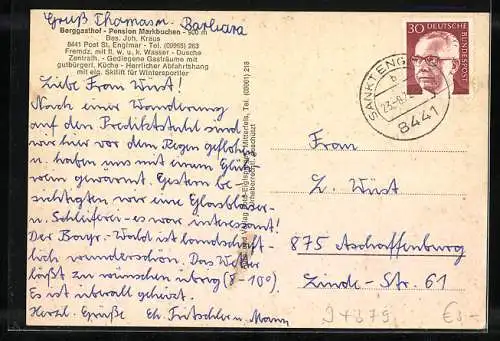 Gruß Thomas u. Barbara
Berggasthof - Pension Markbuchen - 900 m
Bes. Joh. Kraus
8441 Post St. Englmar - Tel. (09965) 263
Fremdz. mit fl. w. u. k. Wasser - Dusche
Zentralh. - Gediegene Gasträume mit
gutbürgerl. Küche - Herrlicher Abfahrtshang
mit eig. Skilift für Wintersportler
Liebe Frau Wüst!
Nach einer Wanderung
auf den Prediktstuhl sind
wir hier vor dem Regen geflohen
u. haben uns mit einem Glüh-
wein gewärmt. Gestern be-
sichtigten wir eine Glasbläser-
u. Schleiferei - es war interessant!
Der Bayr. Wald ist landschaft-
lich wunderschön. Das Wetter
läßt zu wünschen übrig (8-10°).
Es ist überall geheizt.
Herzl. Grüße Eh. Fritschler u. Mann
Mitterfels, Tel. (09961) 218
30
DEUTSCHE BUNDESPOST
SANKT ENG
b
8441
Frau
L. Wüst
875 Aschaffenburg
Linde-Str. 61
€3-